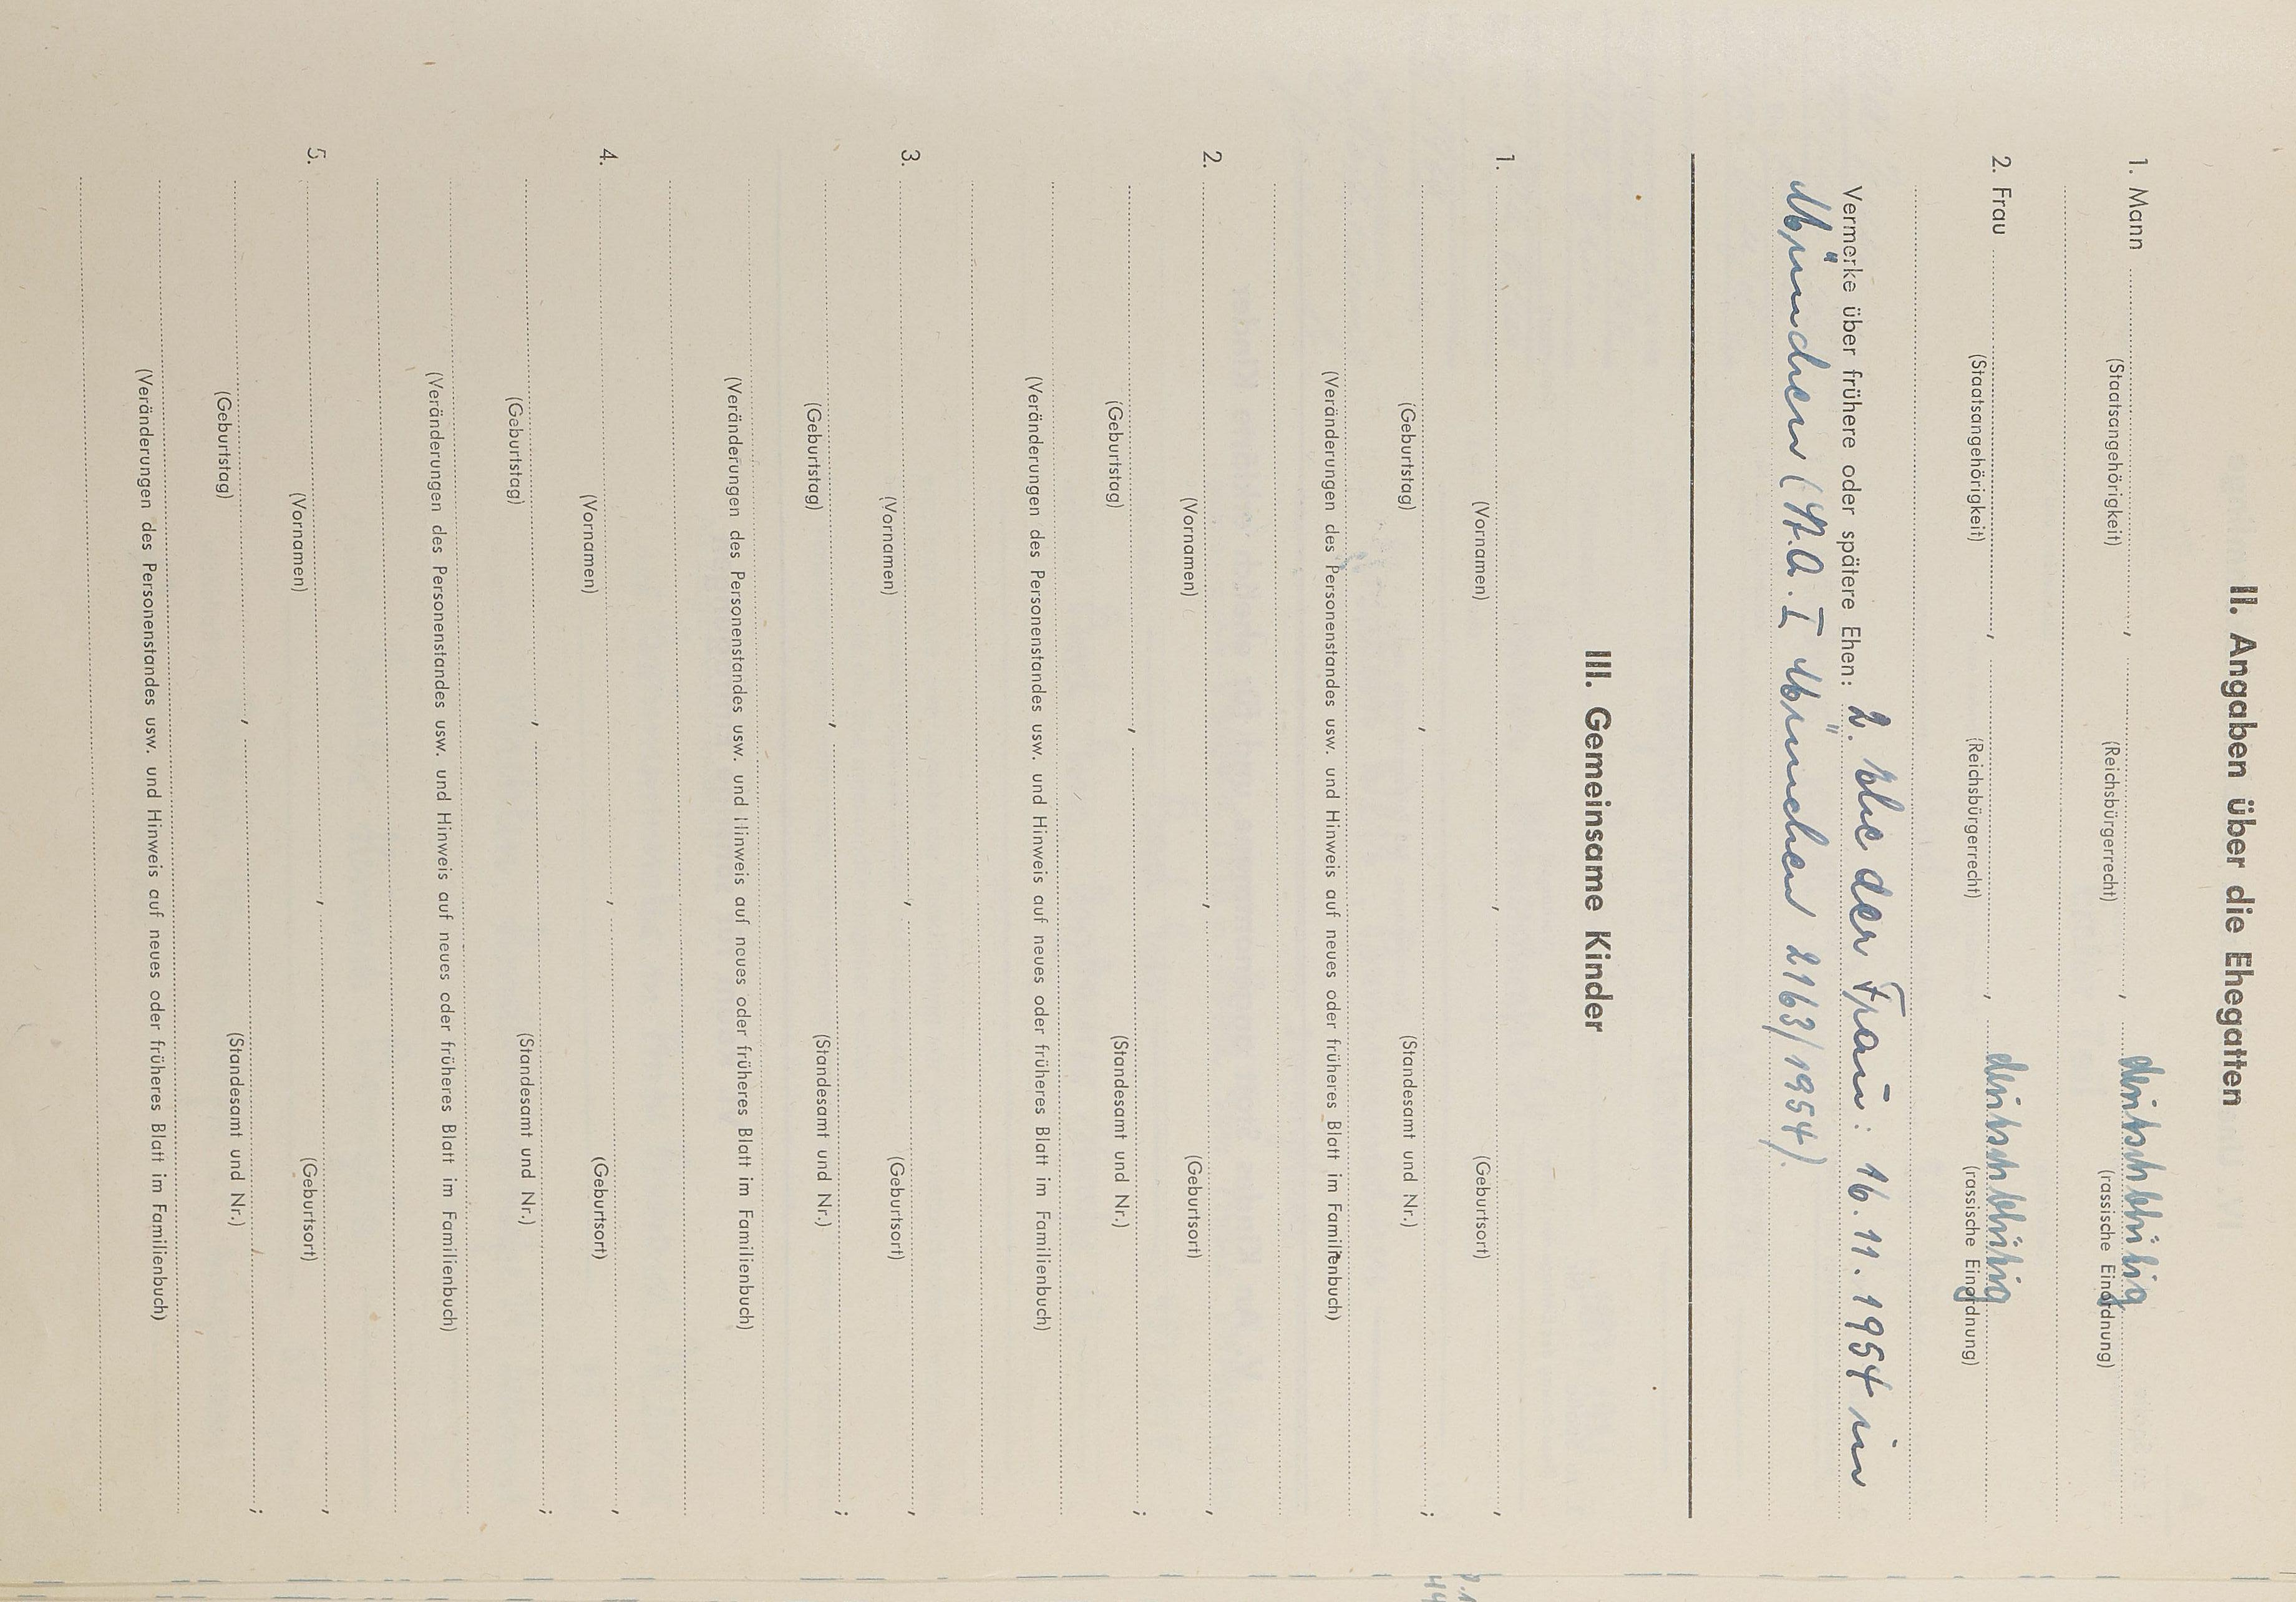 II. Angaben über die Ehegatten
1. Mann , , deutschblütig
(Staatsangehörigkeit) (Reichsbürgerrecht) (rassische Einordnung)
2. Frau , , deutschblütig
(Staatsangehörigkeit) (Reichsbürgerrecht) (rassische Einordnung)
Vermerke über frühere oder spätere Ehen: 2. Ehe der Frau: 16. 11. 1954 in
München ( I München 2163/1954).
III. Gemeinsame Kinder
1. , ,
(Vornamen) (Geburtsort)
, ;
(Geburtstag) (Standesamt und Nr.)
(Veränderungen des Personenstandes usw. und Hinweis auf neues oder früheres Blatt im Familienbuch)
2. , ,
(Vornamen) (Geburtsort)
, ;
(Geburtstag) (Standesamt und Nr.)
(Veränderungen des Personenstandes usw. und Hinweis auf neues oder früheres Blatt im Familienbuch)
3. , ,
(Vornamen) (Geburtsort)
, ;
(Geburtstag) (Standesamt und Nr.)
(Veränderungen des Personenstandes usw. und Hinweis auf neues oder früheres Blatt im Familienbuch)
4. , ,
(Vornamen) (Geburtsort)
, ;
(Geburtstag) (Standesamt und Nr.)
(Veränderungen des Personenstandes usw. und Hinweis auf neues oder früheres Blatt im Familienbuch)
5. , ,
(Vornamen) (Geburtsort)
, ;
(Geburtstag) (Standesamt und Nr.)
(Veränderungen des Personenstandes usw. und Hinweis auf neues oder früheres Blatt im Familienbuch)